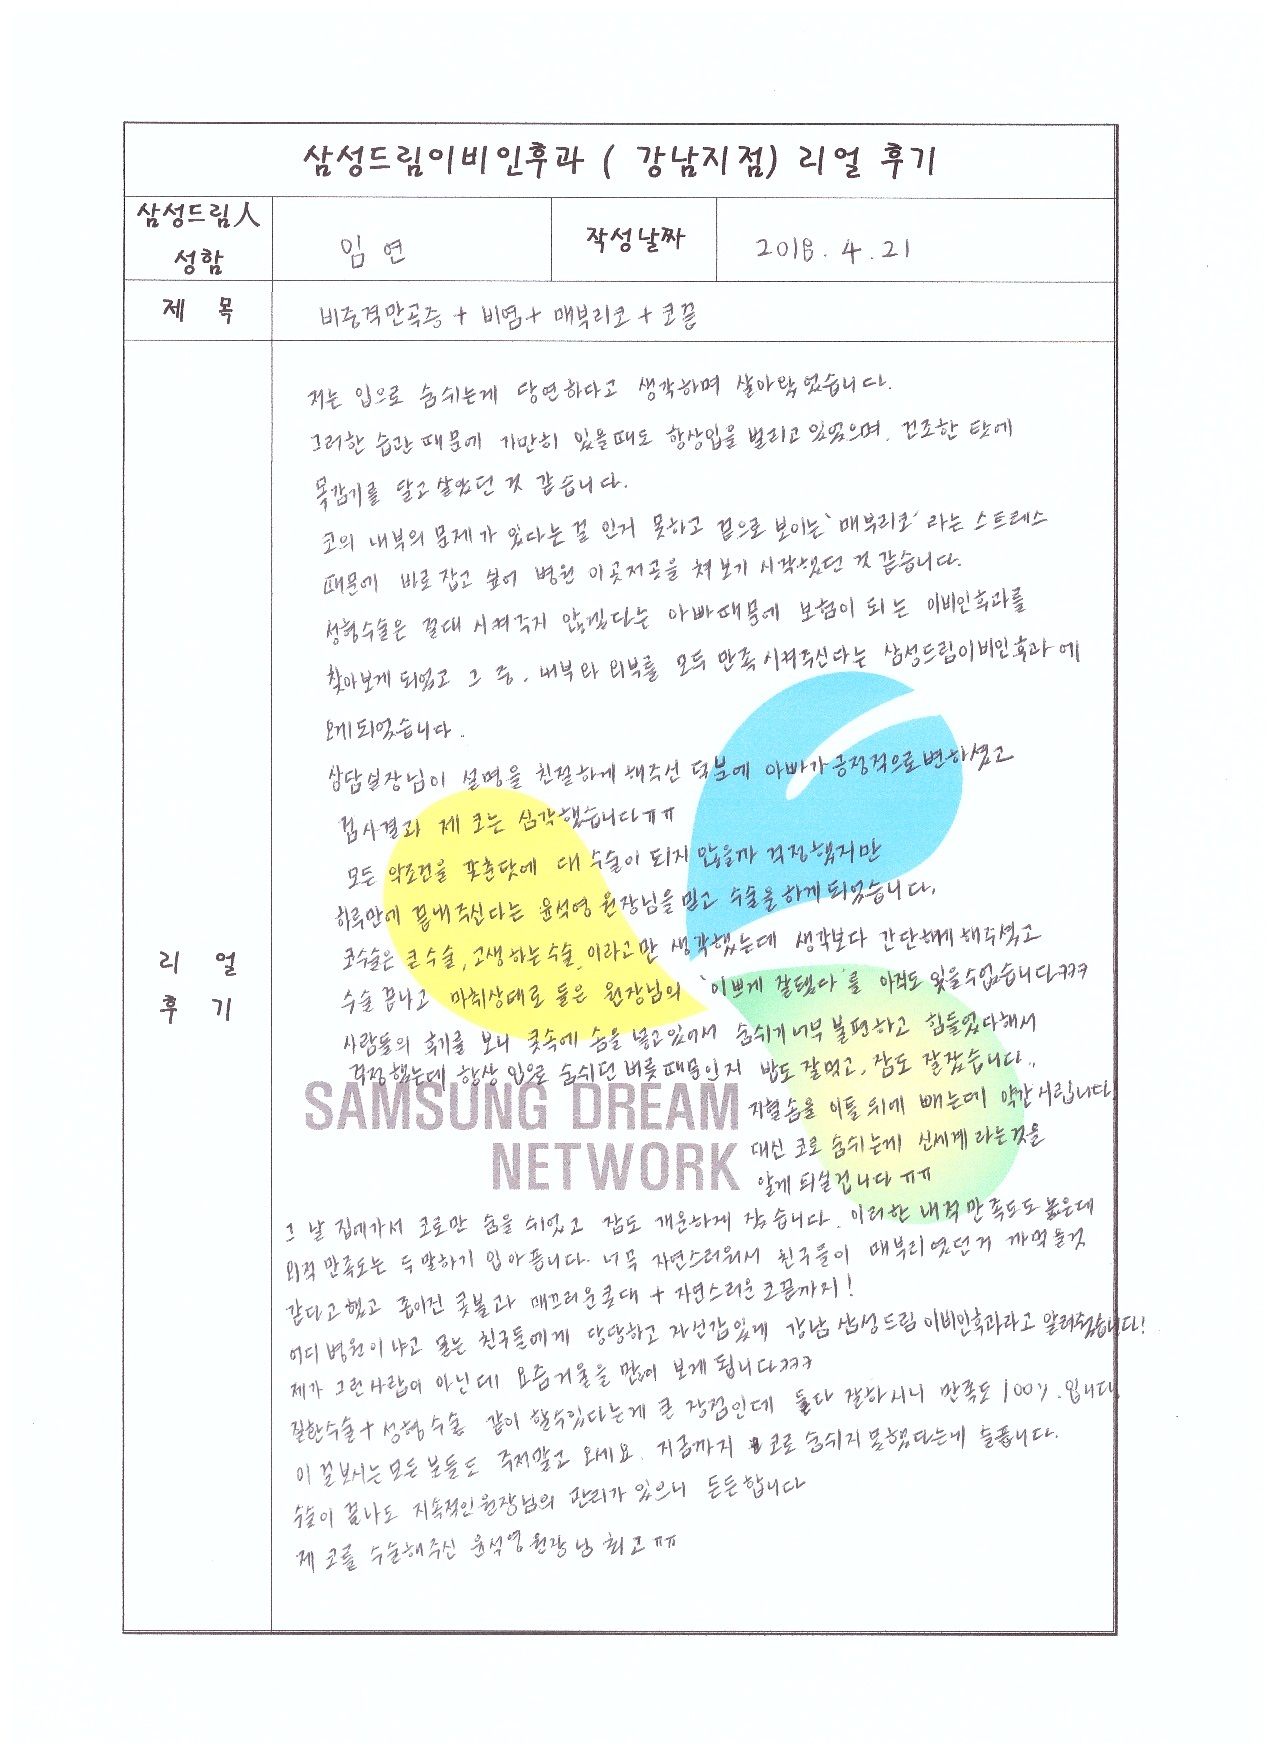 삼성드림이비인후과 ( 강남지점) 리얼 후기
삼성드림人
성함
임 연
작성날짜
2018. 4. 21
제 목
비중격만곡증 + 비염 + 매부리코 + 코끝
리 얼
후 기
저는 입으로 숨쉬는게 당연하다고 생각하며 살아왔었습니다.
그러한 습관 때문에 가만히 있을때도 항상입을 벌리고 있었으며. 건조한 탓에
목감기를 달고 살았던 것 같습니다.
코의 내부의 문제가 있다는 걸 인지 못하고 겉으로 보이는 '매부리코' 라는 스트레스
때문에 바로 잡고 싶어 병원 이곳저곳을 쳐보기 시작했던 것 같습니다.
성형수술은 절대 시켜주지 않겠다는 아빠때문에 보험이 되는 이비인후과를
찾아보게 되었고 그 중, 내부와 외부를 모두 만족시켜주신다는 삼성드림이비인후과에
오게되었습니다.
상담실장님이 설명을 친절하게 해주신 덕분에 아빠가 긍정적으로 변하셨고
검사결과 제 코는 심각했습니다ㅠㅠ
모든 악조건을 갖춘탓에 대 수술이 되지 않을까 걱정했지만
하루만에 끝내주신다는 윤석영 원장님을 믿고 수술을하게 되었습니다.
코수술은 큰수술, 고생하는수술, 이라고만 생각했는데 생각보다 간단하게 해주셨고
수술 끝나고 마취상태로 들은 원장님의 '이쁘게 잘됐다'를 아직도 잊을수없습니다ㅋㅋㅋ
사람들의 후기를 보니 콧속에 솜을 넣고있어서 숨쉬기너무 불편하고 힘들었다해서
걱정했는데 항상 입으로 숨쉬던 버릇때문인지 밥도 잘먹고, 잠도 잘잤습니다.
SAMSUNG DREAM
NETWORK
지혈솜을 이틀 뒤에 빼는데 약간 시립니다
대신 코로 숨쉬는게 신세계 라는것을
알게 되실겁니다 ㅠㅠ
그 날 집에가서 코로만 숨을 쉬었고 잠도 개운하게 잤습니다. 이러한 내적만족도도 높은데
외적 만족도는 두말하기 입아픕니다. 너무 자연스러워서 친구들이 매부리였던거 까먹을것
같다고 했고 좁아진 콧볼과 매끄러운콧대 + 자연스러운 코끝까지!
어디병원이냐고 묻는 친구들에게 당당하고 자신감있게 강남 삼성드림이비인후과라고 알려줬습니다!
제가 그런사람이 아닌데 요즘거울을 많이 보게 됩니다ㅋㅋㅋ
질환수술 + 성형 수술 같이 할수있다는게 큰 장점인데 둘다 잘하시니 만족도 100%. 입니다
이 글보시는 모든 분들도 주저말고 오세요. 지금까지 코로 숨쉬지 못했다는게 슬픕니다.
수술이 끝나도 지속적인 원장님의 관리가 있으니 든든합니다
제 코를 수술해주신 윤석영원장님 최고ㅠㅠ